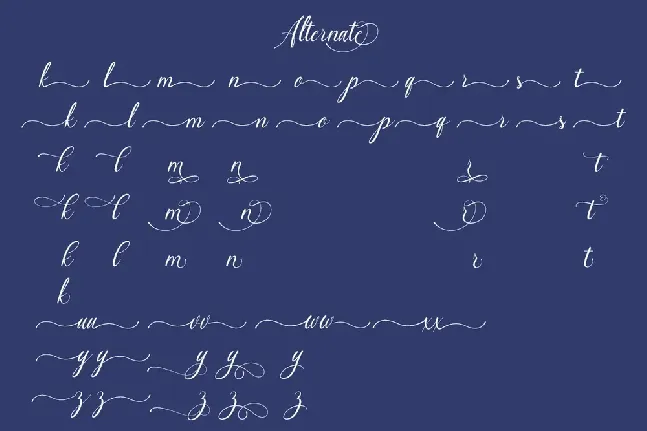 Alternate
k l m n o p q r s t
k l m n o p q r s t
k l m n r t
k l m n r t
k l m n r t
k
uu vv ww xx
y y y y y
z z z z z